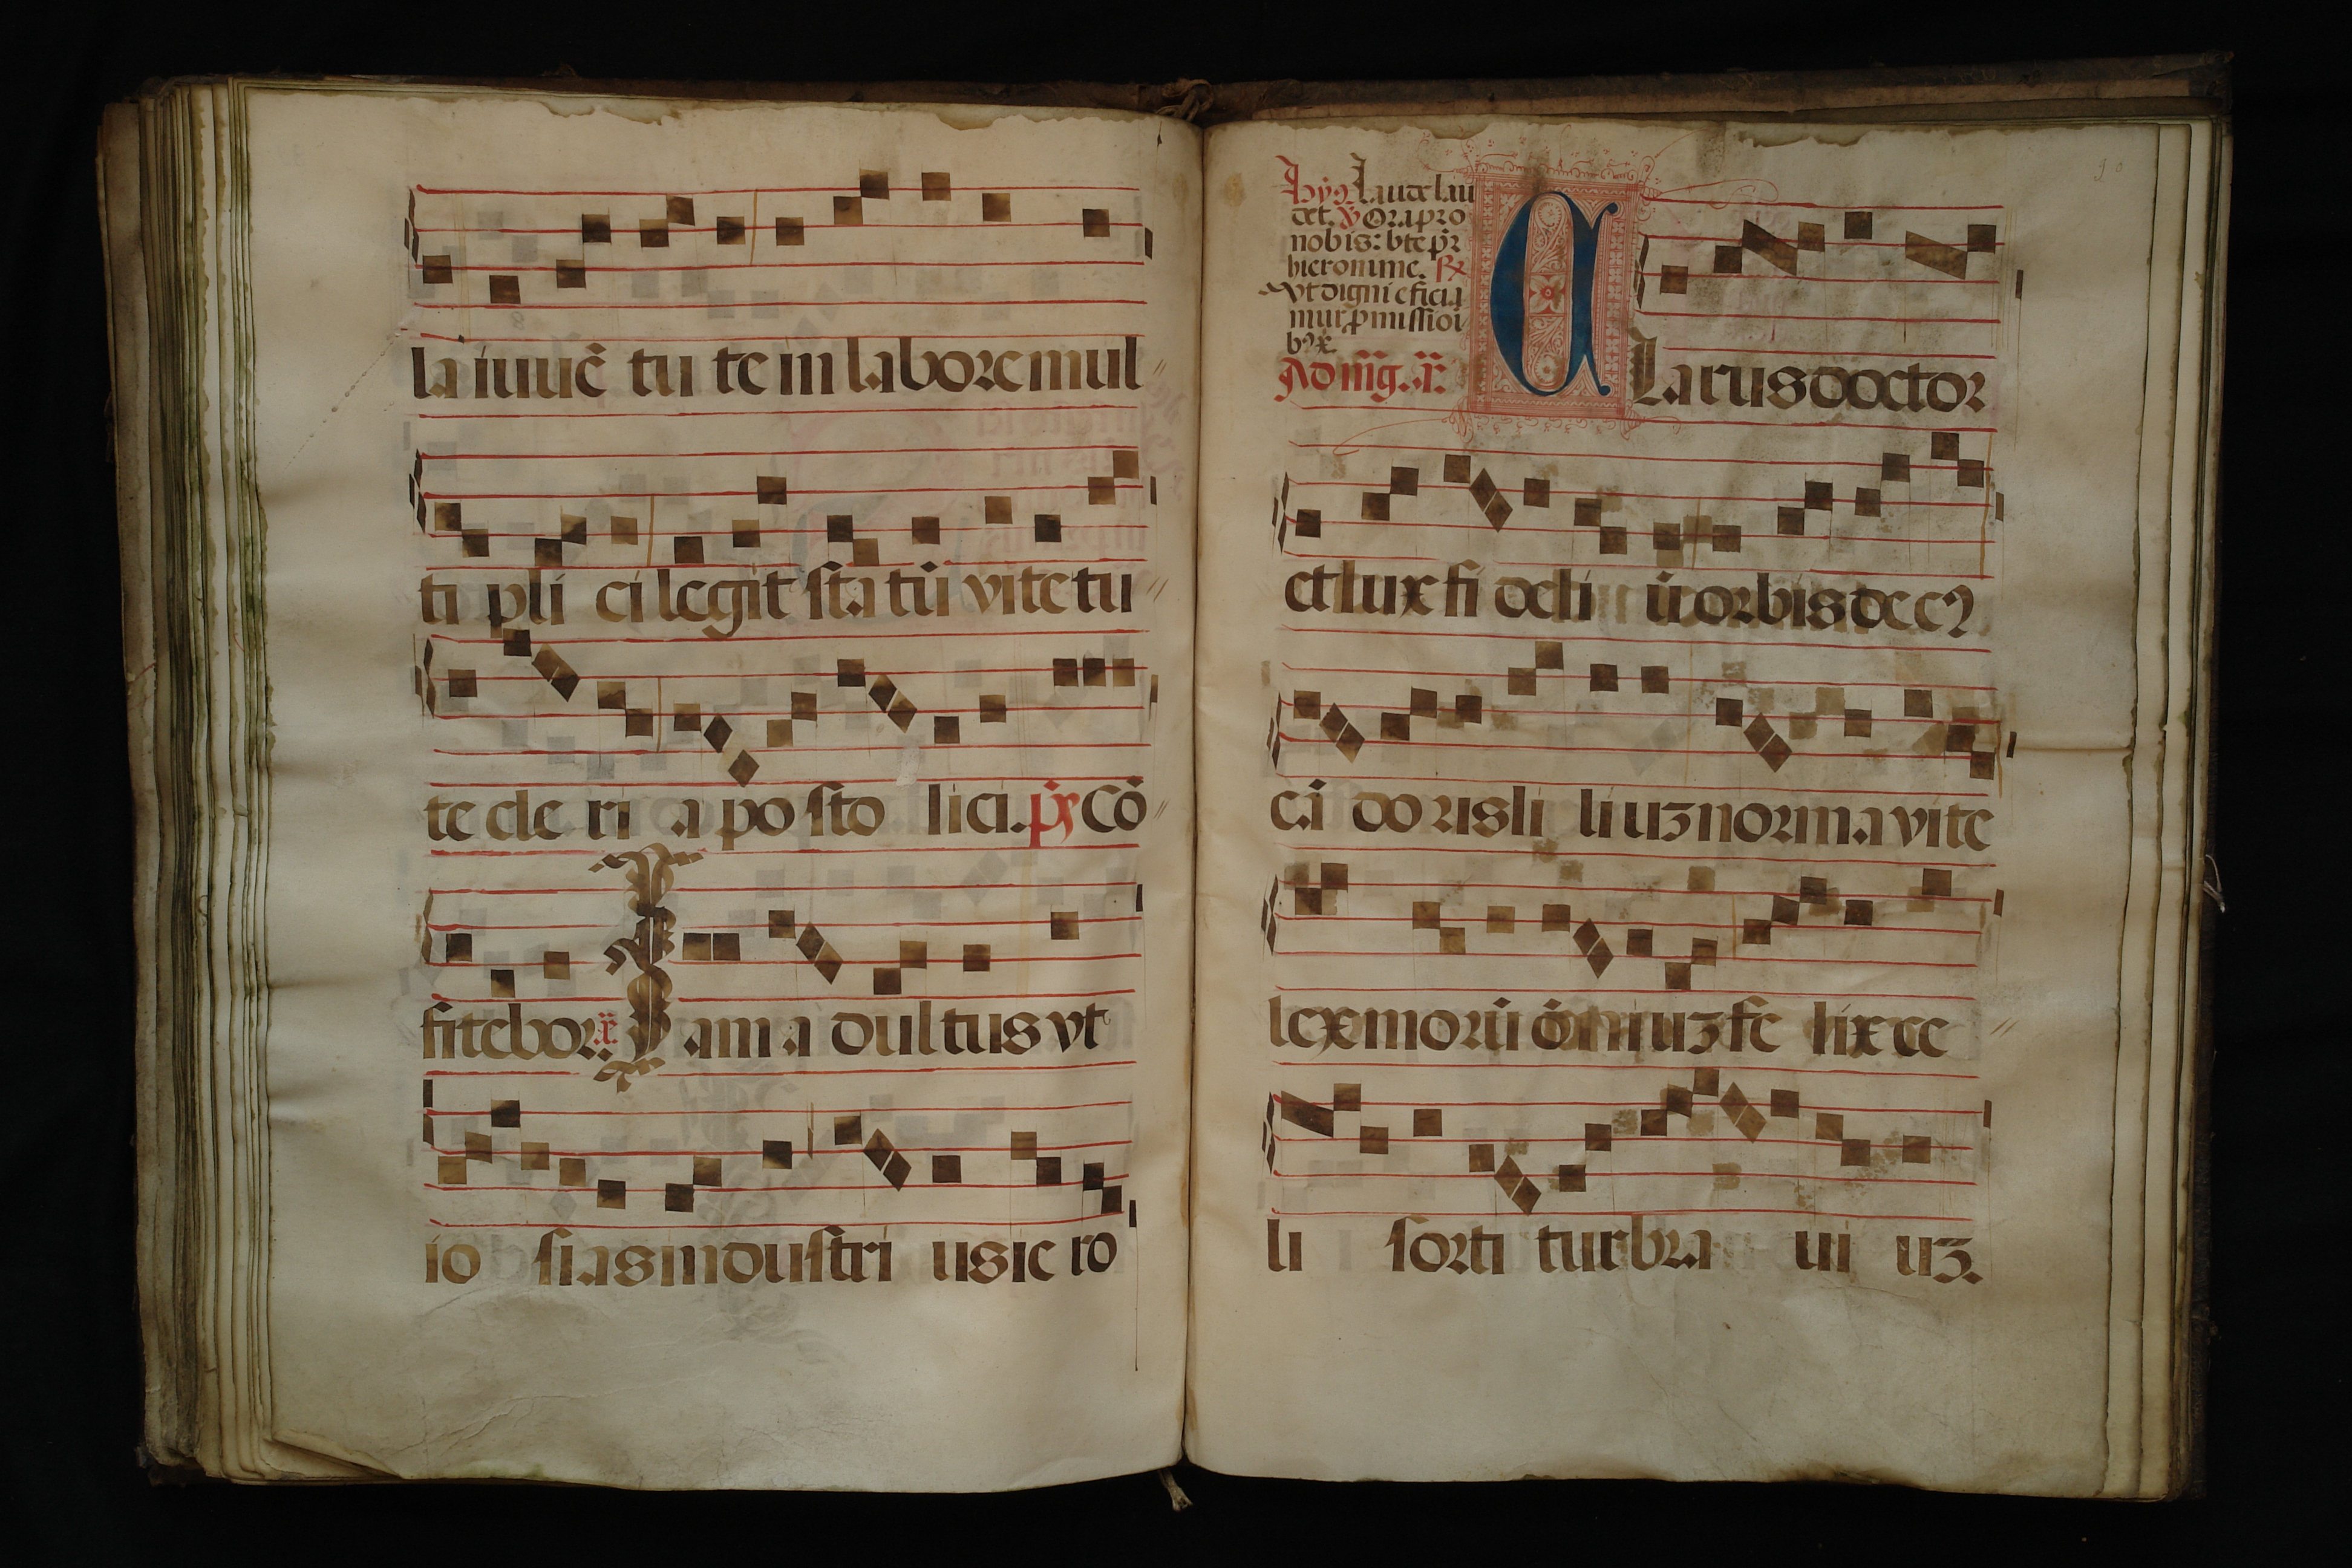 la iuuē tu te in labore mul
ti pli ci legit sta tū vite tu
te cle ri a po sto lici. p̄s Cō
fitebor. Iam a dul tus vt
io sias industri us ie ro
hȳ9. Laude lau
det. ℣ Ora pro
nobis: bte pr̄
hieronime. ℟
vt digni efficia
mur ꝓmissiōi
b9 x̄.
Ad mḡ. ā.
Clarus doctor
et lux fi deli ū orbis dec9
cā do ris li li uꝫ norma vite
lex morū ōm̄i uꝫ fe lix ec
li sorti tur bra ui uꝫ.